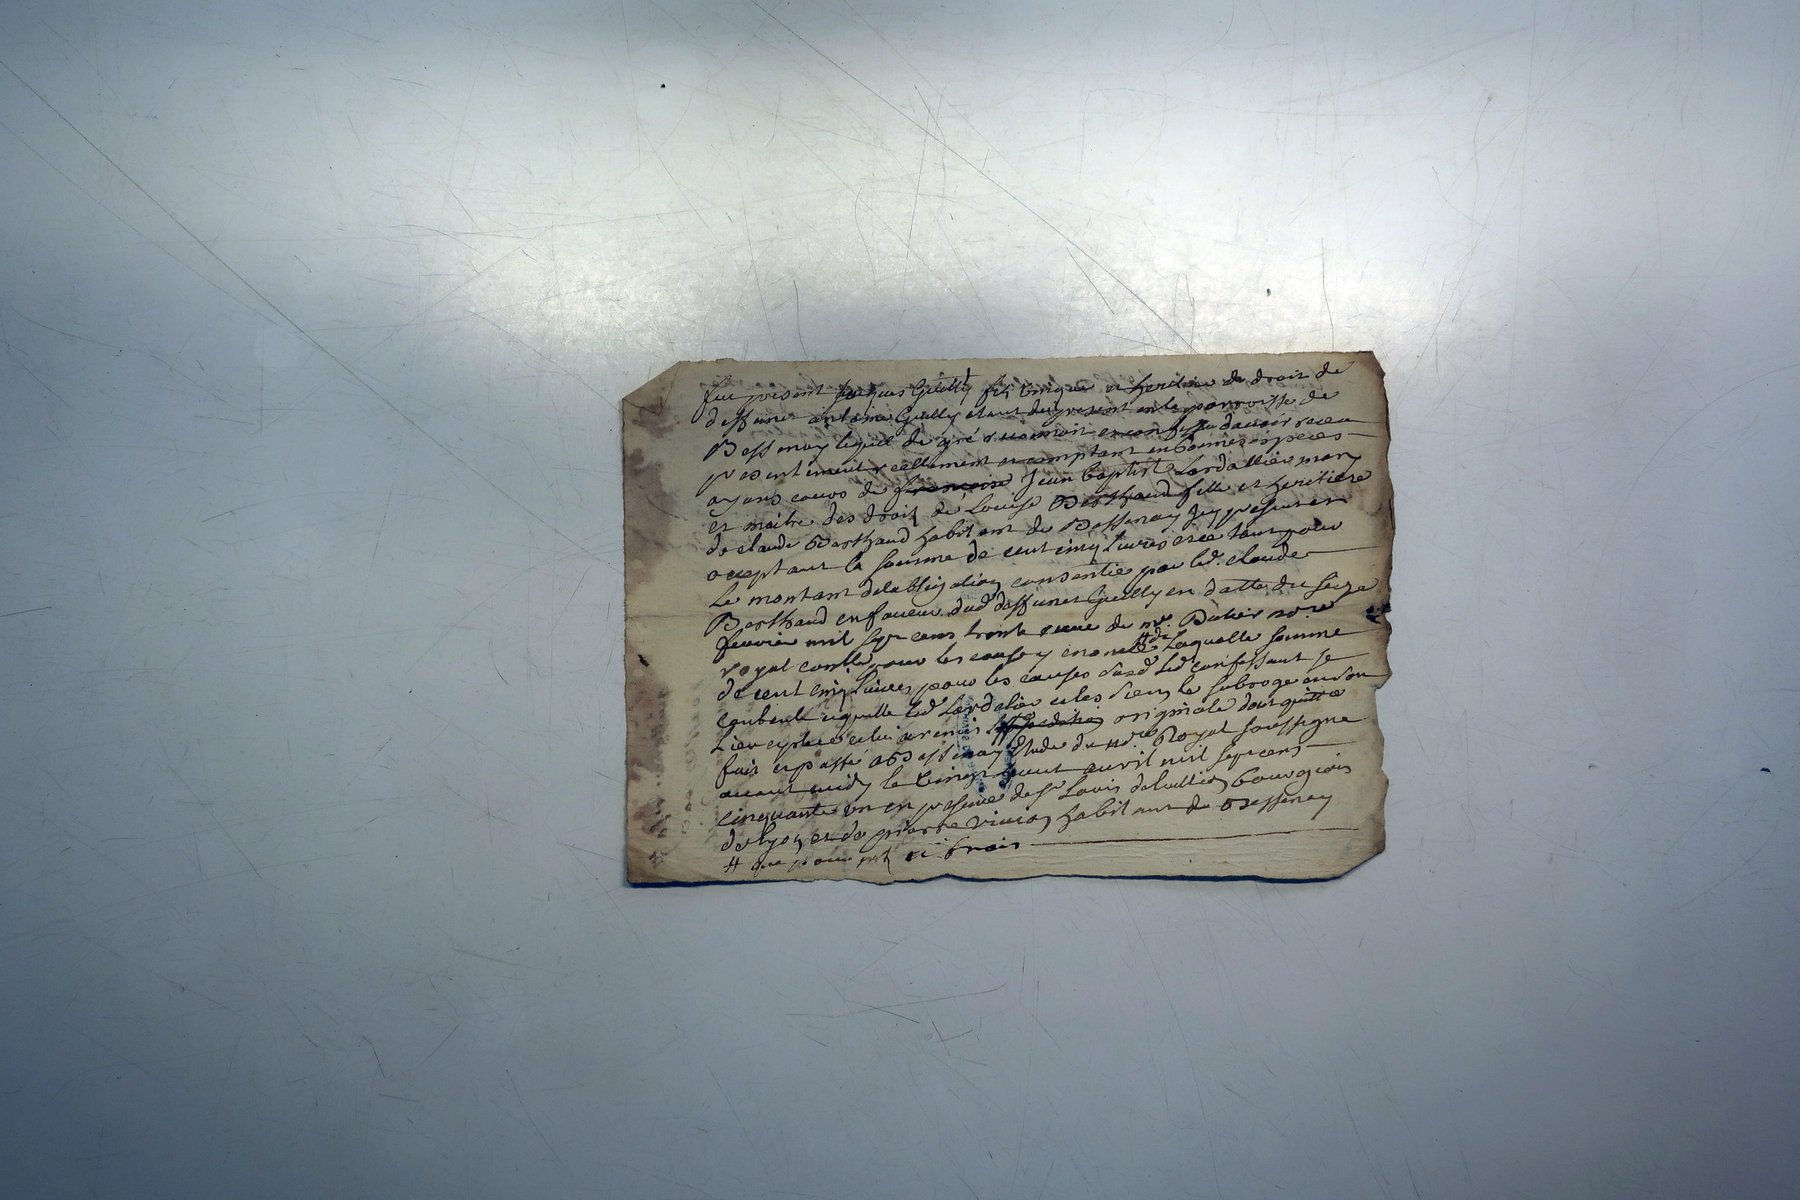 fut present Jacques Guilly fils unique et heritier de droit de
deffunct antoine Guilly etant du present en la parroisse de
Bessenay lequel de gré reconnoit et confesse davoir receu
presentement reellement et comptant en bonnes especes
ayans cours de francoise Jean baptiste Lardellier mary
et maitre des droits de Louise Berthaud fille et heritiere
de claude Berthaud habitant de Bessenay Icy present et
acceptant la somme de cent cinq livres et ce tout pour
Le montant delobligation consentie par led. claude
Berthaud en faveur dud deffunct Guilly en datte du seize
fevrier mil sept cens trente de me. no.re
royal comtte pour les causes y enoncées Laquelle somme
de cent cinq Livres pour les causes susd. led confessant se
contente en quitte led Lardelier et les siens le subroge en son
Lieu et place et lui a remis Lexpedition originale dont quitte
fait et passé a Bessenay Etude du no.re Royal soussigné
avant midy le vingt avril mil sept cens
cinquante un en presence de sr Louis bourgeois
de Lyon et de pierre habitant de Bessenay
# que pour